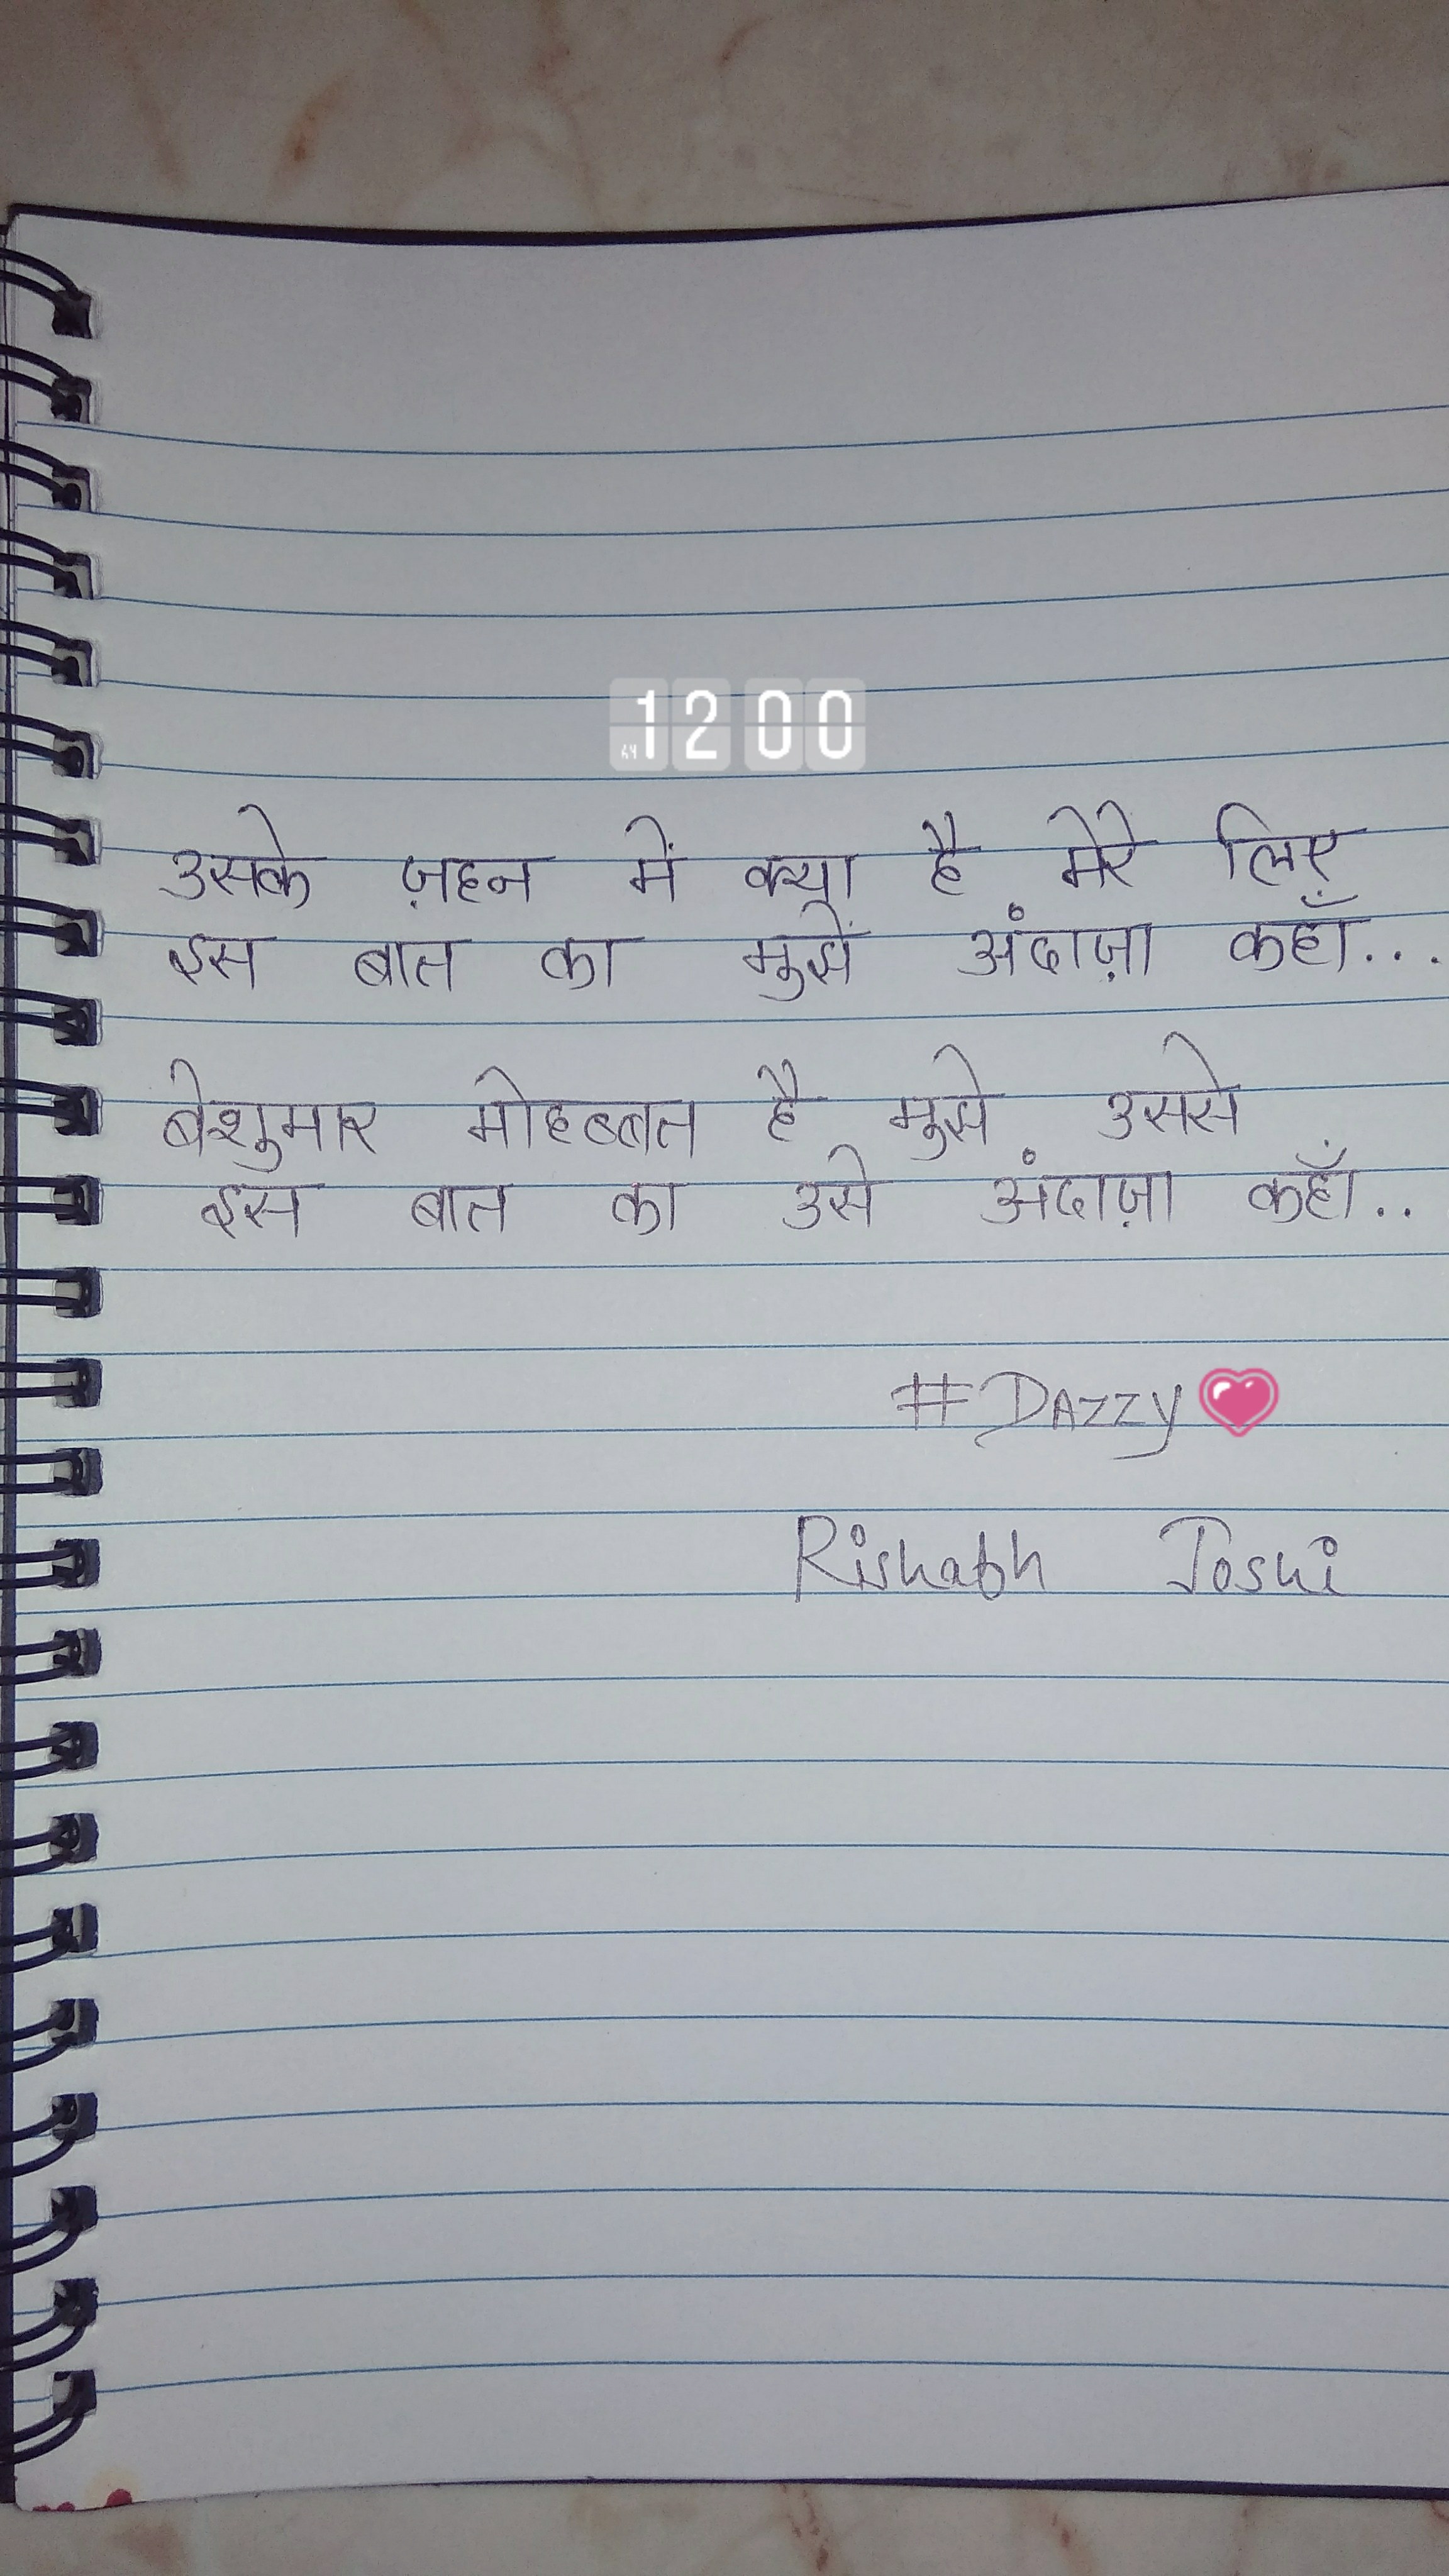 AM 12 00
उसके ज़हन में क्या है मेरे लिए
इस बात का मुझे अंदाज़ा कहाँ...
बेशुमार मोहब्बत है मुझे उससे
इस बात का उसे अंदाज़ा कहाँ..
#DAZZY💗
Rishabh Joshi